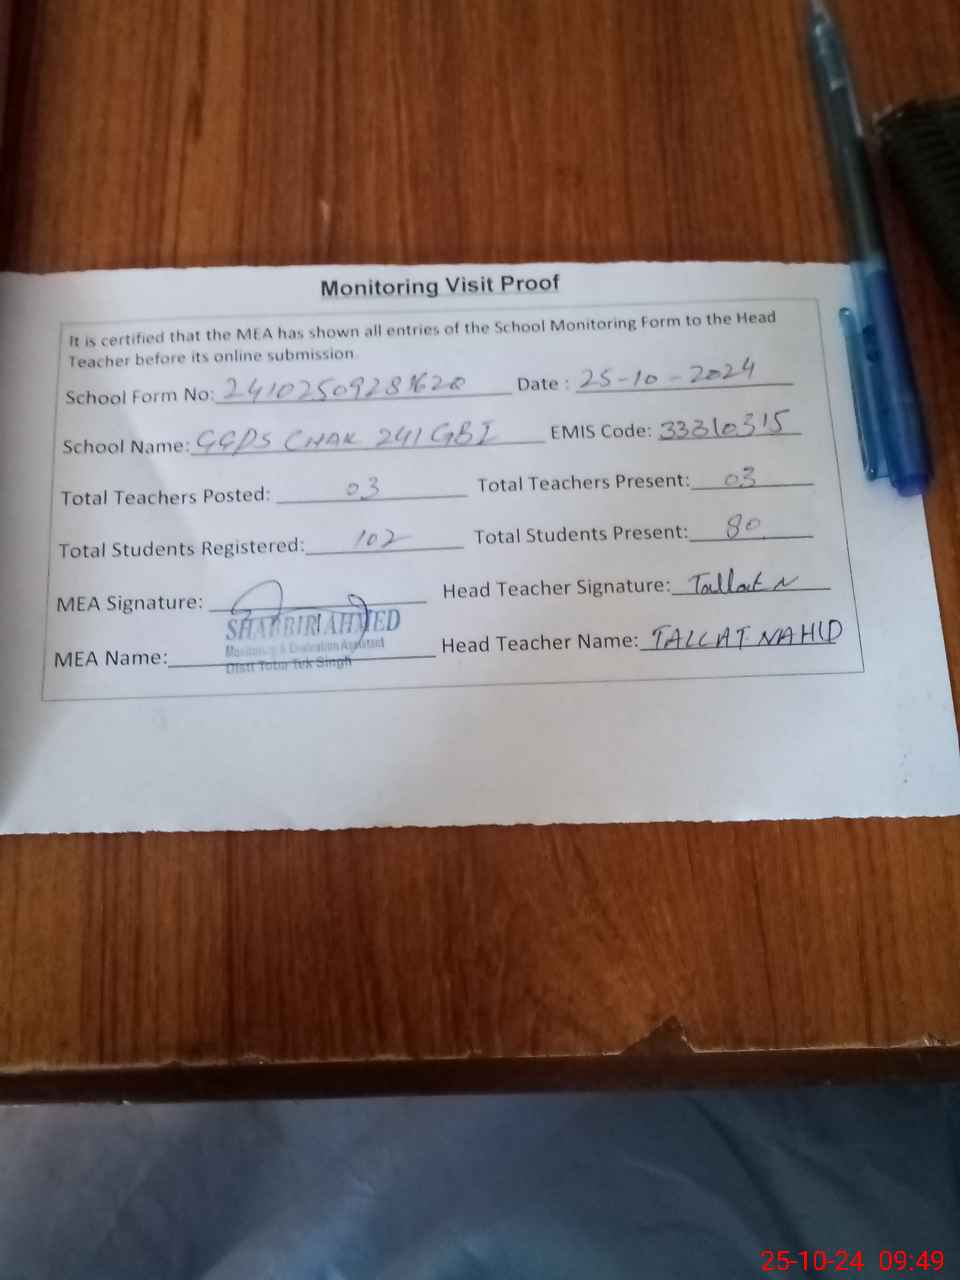 Monitoring Visit Proof
It is certified that the MEA has shown all entries of the School Monitoring Form to the Head
Teacher before its online submission
School Form No: 24102509281628 Date : 25-10-2024
School Name: GGPS CHAK 241 GB I EMIS Code: 33310315
Total Teachers Posted: 03 Total Teachers Present: 03
Total Students Registered: 102 Total Students Present: 80
MEA Signature: Head Teacher Signature: Tallat N
SHABBIR AHMED
Monitoring & Evaluation Assistant
MEA Name: Head Teacher Name: TALLAT NAHID
Distt Toba Tek Singh
25-10-24 09:49